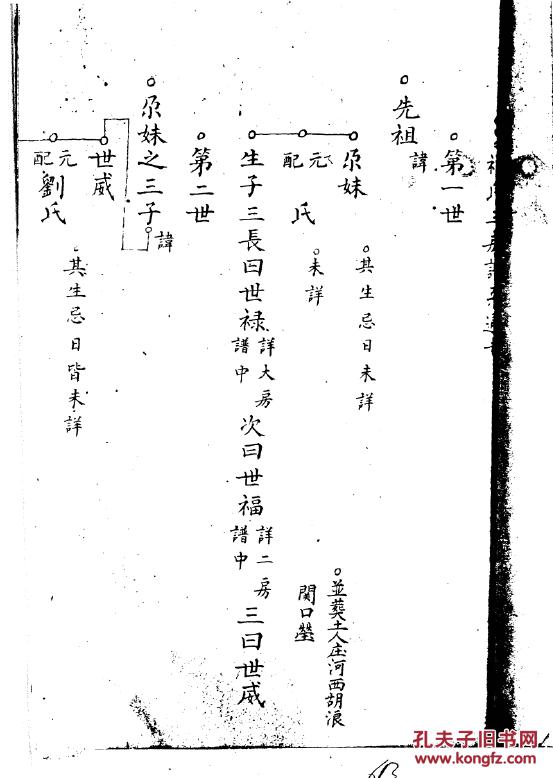 第一世
先祖
諱
尕妹
其生忌日未詳
元配
氏
未詳
並葬土人庄河西胡浪
関口塋
生子三長曰世禄詳大房譜中次曰世福詳二房譜中三曰世威
第二世
尕妹之三子
諱
世威
元配
劉氏
其生忌日皆未詳
孔夫子旧书网
www.kongfz.com